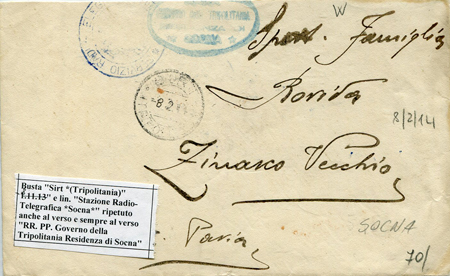 W
Spett. Famiglia
Rovida
8/2/14
Zinasco Vecchio
Pavia
SOCNA
70/
-8.2.
Busta "Sirt *(Tripolitania)"
1.11.13" e lin. "Stazione Radio-
Telegrafica *Socna*" ripetuto
anche al verso e sempre al verso
"RR. PP. Governo della
Tripolitania Residenza di Socna"